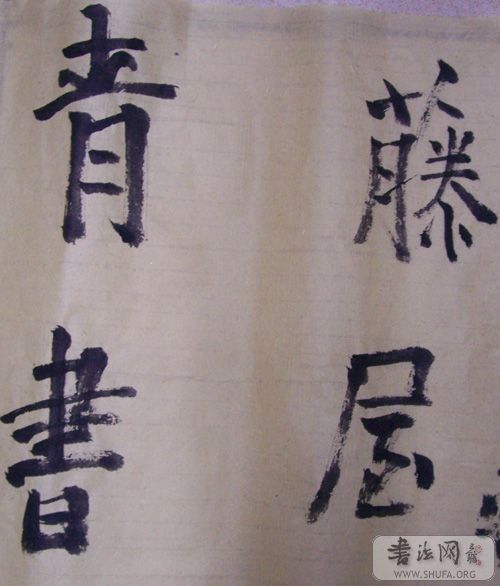 青藤
書屋
書法网
WWW.SHUFA.ORG